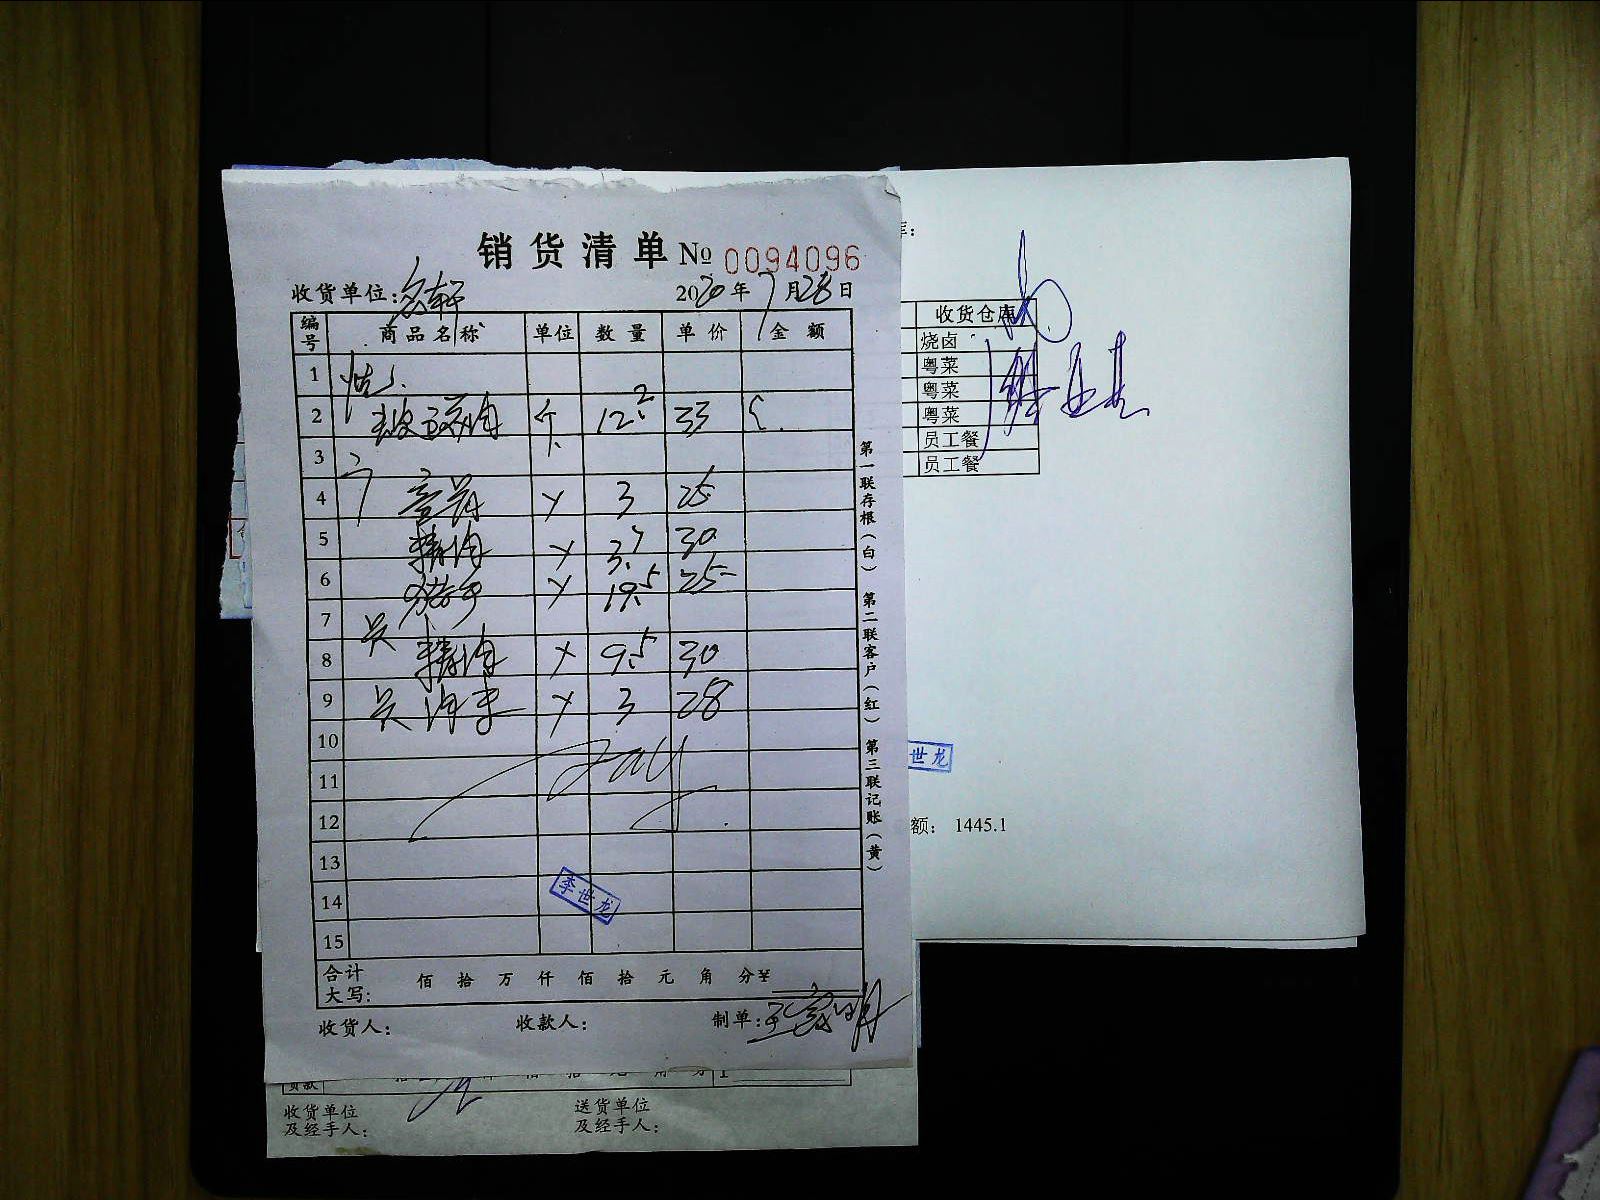 销货清单 № 0094096
收货单位: 名轩 2020年7月28日
编号 商品名称 单位 数量 单价 金额
1 烧
2 去皮五花肉 个 12.2 33
3
4 3 25
5 精肉 3.7 30
6 猪手 19.5 25
7 员
8 精肉 9.5 30
9 员 肉 3 28
10
11
12
13
14
15
李世龙
合计大写: 佰 拾 万 仟 佰 拾 元 角 分¥
收货人: 收款人: 制单:
第一联存根(白) 第二联客户(红) 第三联记账(黄)
收货仓库
烧卤
粤菜
粤菜
粤菜
员工餐
员工餐
世龙
额: 1445.1
收货单位及经手人:
送货单位及经手人: